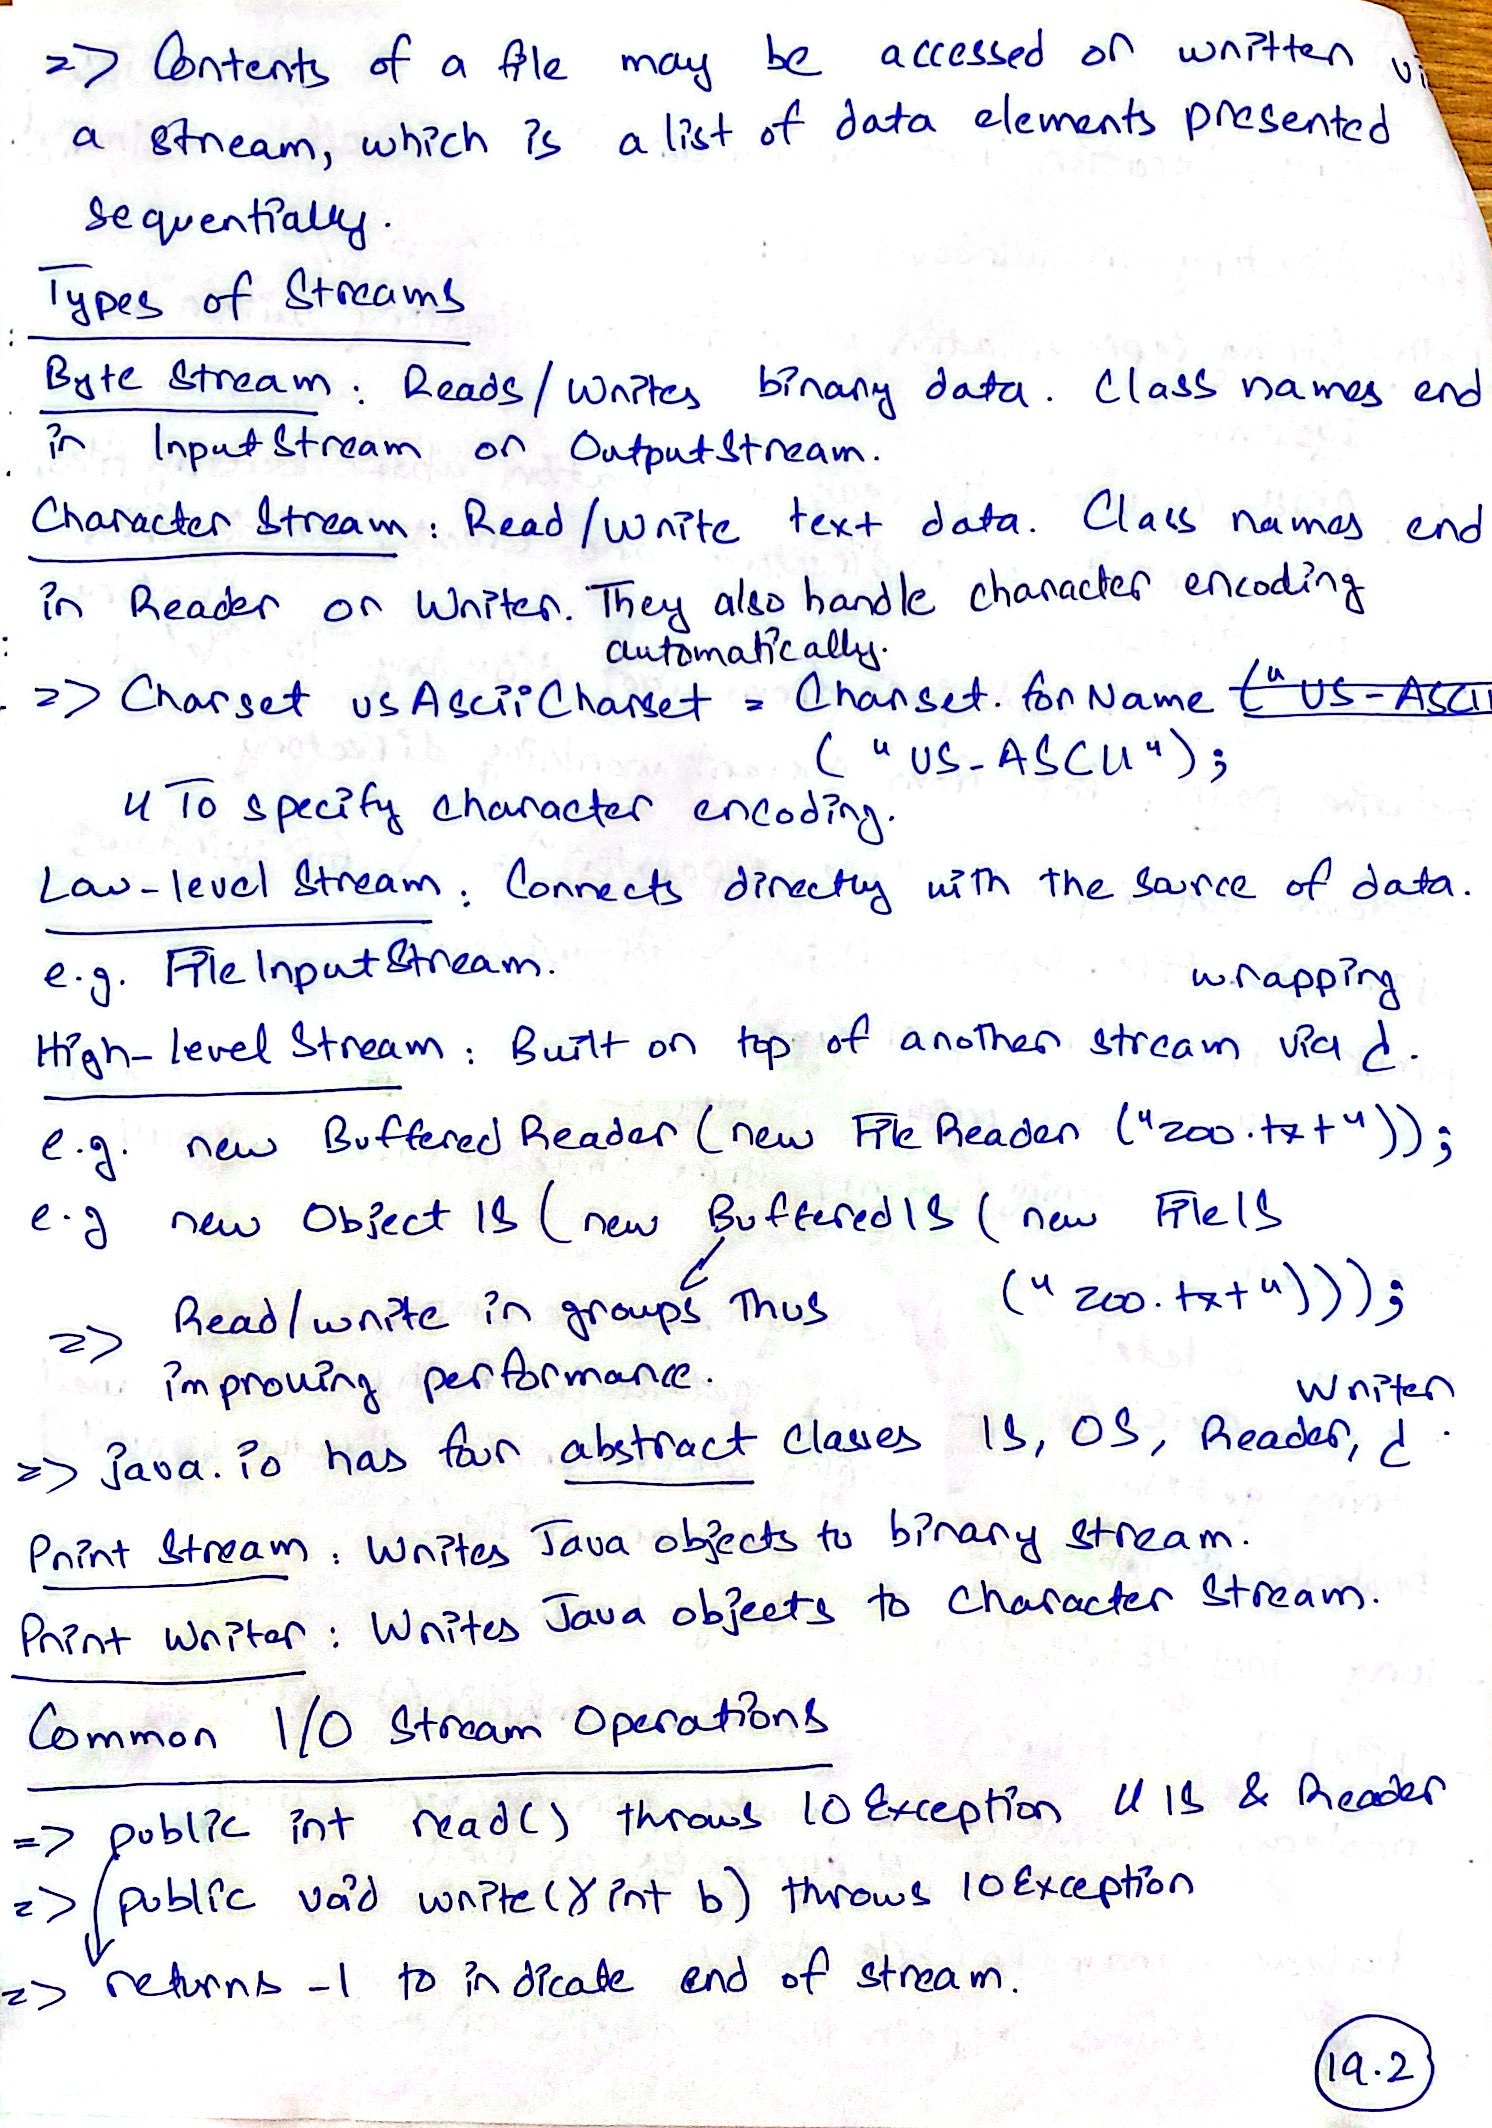 => Contents of a file may be accessed or written
a stream, which is a list of data elements presented
sequentially.
Types of Streams
Byte Stream : Reads/Writes binary data. Class names end
in InputStream or OutputStream.
Character Stream : Read/Write text data. Class names end
in Reader or Writer. They also handle character encoding
automatically.
=> Charset usAsciiCharset = Charset.forName ("US-ASCII
("US-ASCII");
// To specify character encoding.
Low-level Stream : Connects directly with the source of data.
e.g. FileInputStream.
wrapping
High-level Stream : Built on top of another stream via .
e.g. new BufferedReader (new FileReader ("zoo.txt"));
e.g new ObjectIS (new BufferedIS (new FileIS
("zoo.txt")));
=> Read/write in groups thus
improving performance.
Writer
=> java.io has four abstract classes IS, OS, Reader, .
Print Stream : Writes Java objects to binary stream.
Print Writer : Writes Java objects to character stream.
Common I/O Stream Operations
=> public int read() throws IOException // IS & Reader
=> public void write(int b) throws IOException
=> returns -1 to indicate end of stream.
19.2